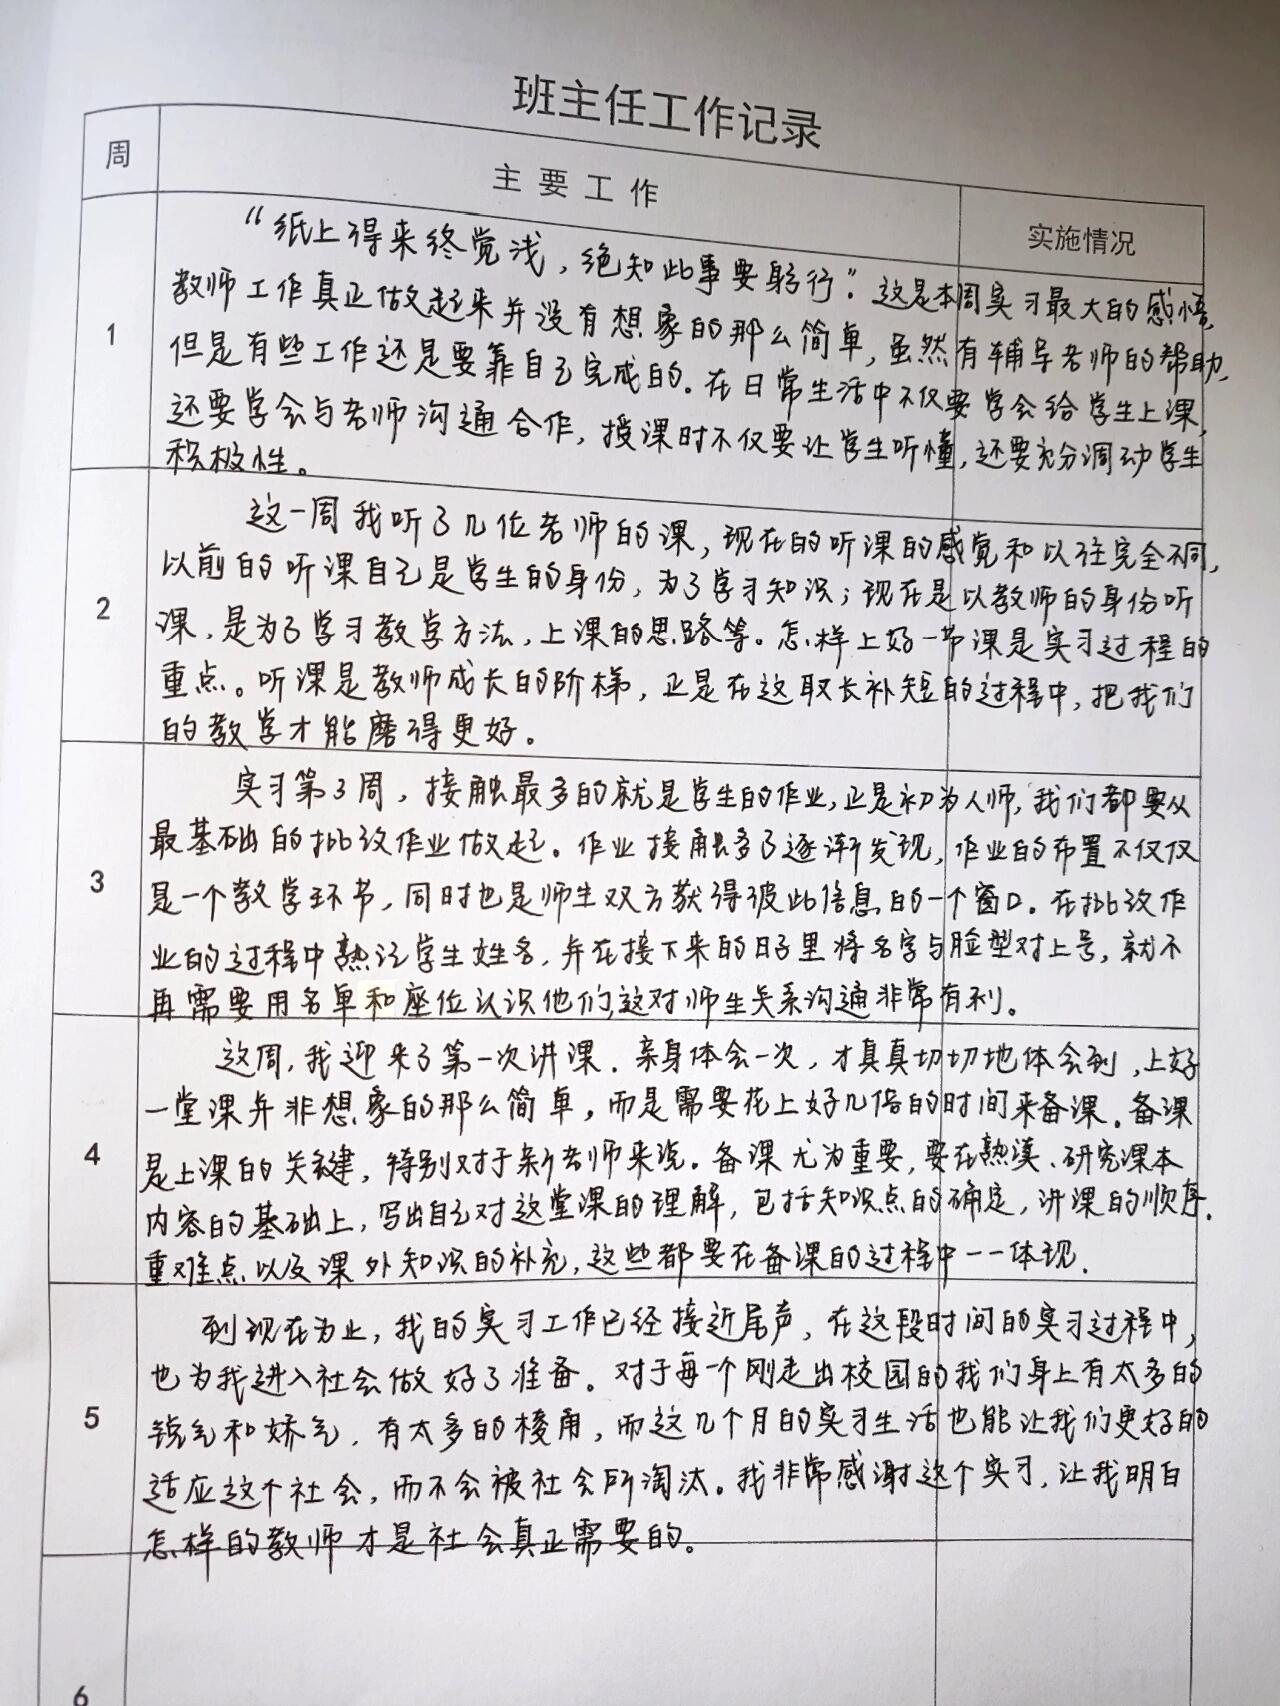 班主任工作记录
周
主要工作
实施情况
1
“纸上得来终觉浅，绝知此事要躬行”。这是本周实习最大的感悟，
教师工作真正做起来并没有想象的那么简单，虽然有辅导老师的帮助，
但是有些工作还是要靠自己完成的。在日常生活中不仅要学会给学生上课，
还要学会与老师沟通合作，授课时不仅要让学生听懂，还要充分调动学生
积极性。
2
这一周我听了几位老师的课，现在的听课的感觉和以往完全不同，
以前的听课自己是学生的身份，为了学习知识；现在是以教师的身份听
课，是为了学习教学方法，上课的思路等。怎样上好一节课是实习过程的
重点。听课是教师成长的阶梯，正是在这取长补短的过程中，把我们
的教学才能磨得更好。
3
实习第3周，接触最多的就是学生的作业，正是初为人师，我们都要从
最基础的批改作业做起。作业接触多了逐渐发现，作业的布置不仅仅
是一个教学环节，同时也是师生双方获得彼此信息的一个窗口。在批改作
业的过程中熟记学生姓名，并在接下来的日子里将名字与脸型对上号，就不
再需要用名单和座位认识他们，这对师生关系沟通非常有利。
4
这周，我迎来了第一次讲课．亲身体会一次，才真真切切地体会到，上好
一堂课并非想象的那么简单，而是需要花上好几倍的时间来备课．备课
是上课的关键，特别对于新老师来说。备课尤为重要，要在熟读、研究课本
内容的基础上，写出自己对这堂课的理解，包括知识点的确定，讲课的顺序．
重难点以及课外知识的补充，这些都要在备课的过程中一一体现．
5
到现在为止，我的实习工作已经接近尾声，在这段时间的实习过程中，
也为我进入社会做好了准备。对于每一个刚走出校园的我们身上有太多的
锐气和娇气，有太多的棱角，而这几个月的实习生活也能让我们更好的
适应这个社会，而不会被社会所淘汰。我非常感谢这个实习，让我明白
怎样的教师才是社会真正需要的。
6